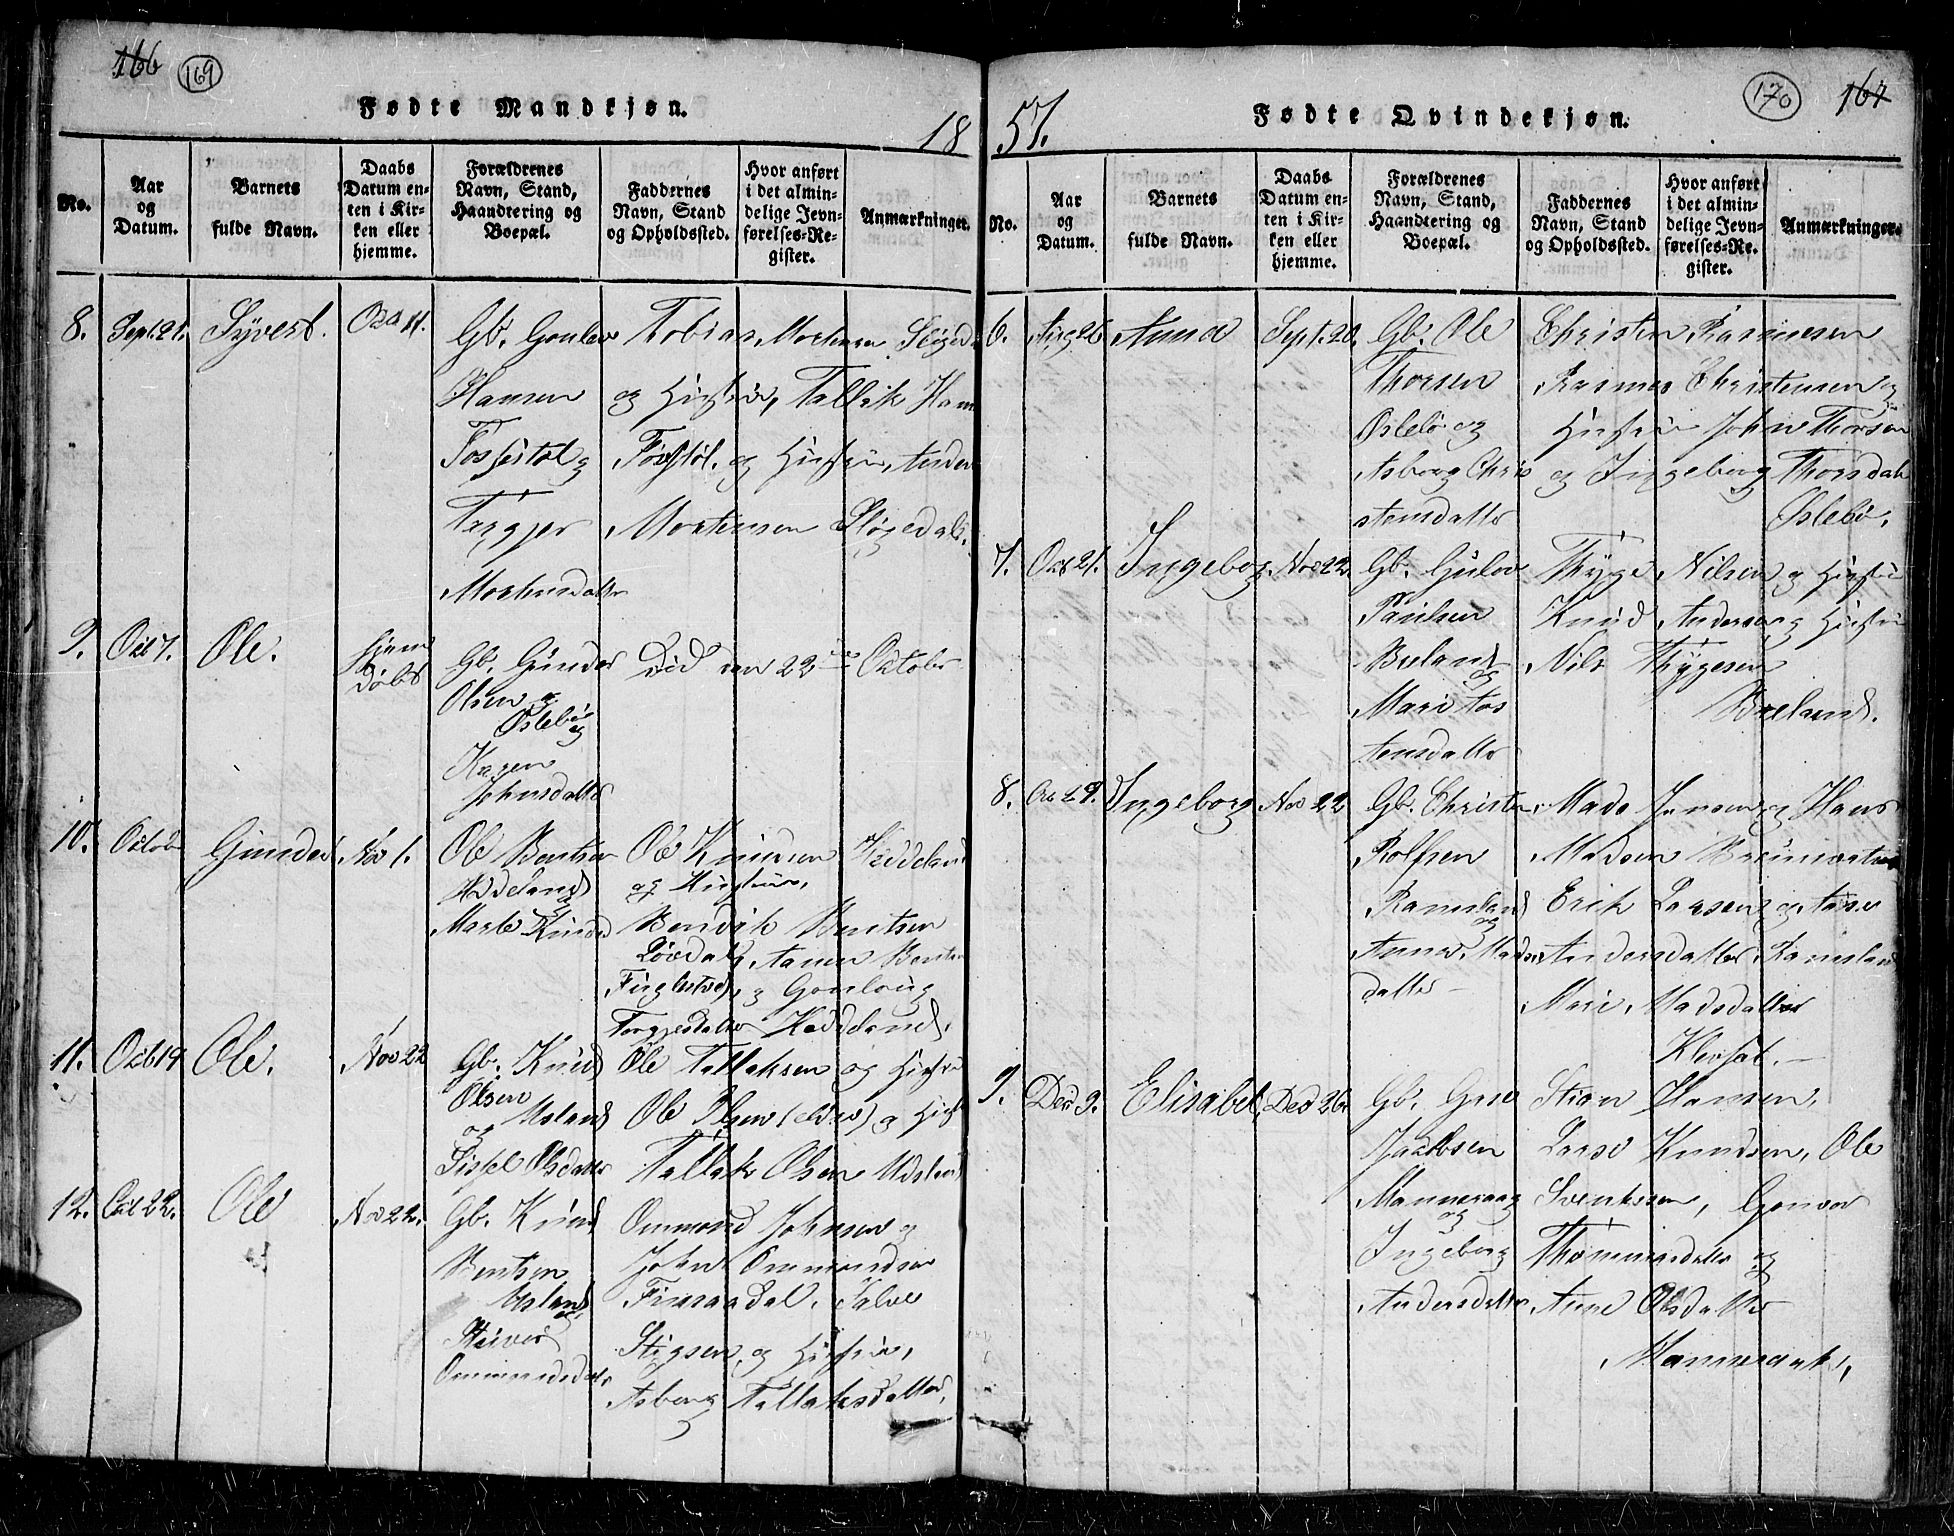 166 169
Fødte Mandkjøn.
18
No.
Aar og Datum.
Barnets fulde Navn.
Daabs Datum enten i Kirken eller hjemme.
Forældrenes Navn, Stand, Haandtering og Boepæl.
Faddernes Navn, Stand og Opholdssted.
Hvor anført i det almindelige Jevnførelses-Register.
Anmærkninger.
8. Sept. 21. Syvert. Oct 11.
Gb. Gonlev
Hansen
Fosstøl og
Torgjer
Mortensdatter
Tobias Mortensen
og Hustru, Tallak Hans
Fosstøl og Hustru, Anders
Mortensen Sløgedal.
9. Oct 7. Ole. Hjem døbt
Gb. Gunder
Olsen
Oslebø og
Karen
Johnsdatter
Død den 22 October
10. Octob Gunder Nov 1.
Ole Bentsen
Heddeland
Marte Knuds
Ole Knudsen Heddeland
og Hustru,
Bendik Bentsen
Aanen Bentsen
Fuglestved, og Gonloug
Torgjesdatter Heddeland.
11. Oct 19 Ole. Nov 22
Gb. Knud
Olsen
og Usland
Sissel Olsdatter
Ole Tallaksen og Hustru
Ole Olsen (eldre) og Hust
Tallak Olsen Usland
12. Oct 22. Ole Nov 22.
Gb. Knud
Bentsen
Usland
Ommundsdatter
Ommund Johnsen og
John Ommundsen
Finsaadal. Salve
Stigsen og Hustru,
Asborg Tallaksdatter,
170 167
57.
Fødte Qvindekjøn.
No.
Aar og Datum.
Barnets fulde Navn.
Daabs Datum enten i Kirken eller hjemme.
Forældrenes Navn, Stand, Haandtering og Boepæl.
Faddernes Navn, Stand og Opholdssted.
Hvor anført i det almindelige Jevnførelses-Register.
Anmærkninger.
6. Aug 26 Anna Sept. 20.
Gb. Ole
Thorsen
Oslebø og
Asborg Chris
stensdatter
Christen Rasmusen
Rasmus Christensen og
Hustru John Thorsen
og Ingeborg Thorsdatter
Oslebø.
7. Oct 21. Ingeborg. Nov 22
Gb. Gulov
Paulsen
Breland og
Mari Tos
tensdatter
Thyge Nilsen og Hustru
Knud Anderson og Hustru
Nils Thygesen
Breland.
8. Oct 29. Ingeborg Nov 22
Gb. Christen
Rolfsen
Ramsland og
Anna Mads
datter
Mads Jensen og Hans
Madsen
Erik Larsen og Aase
Andersdatter Ramsland
Mari Madsdatter
9. Dec 9. Elisabet. Dec 26.
Gb.
Jacobsen
Manneraag
og
Ingeborg
Andersdatter
Stian Hansen,
Lars Knudsen, Ole
Svenksen, Gonvor
Thommasdatter og
Ane Olsdatter
Manneraak,